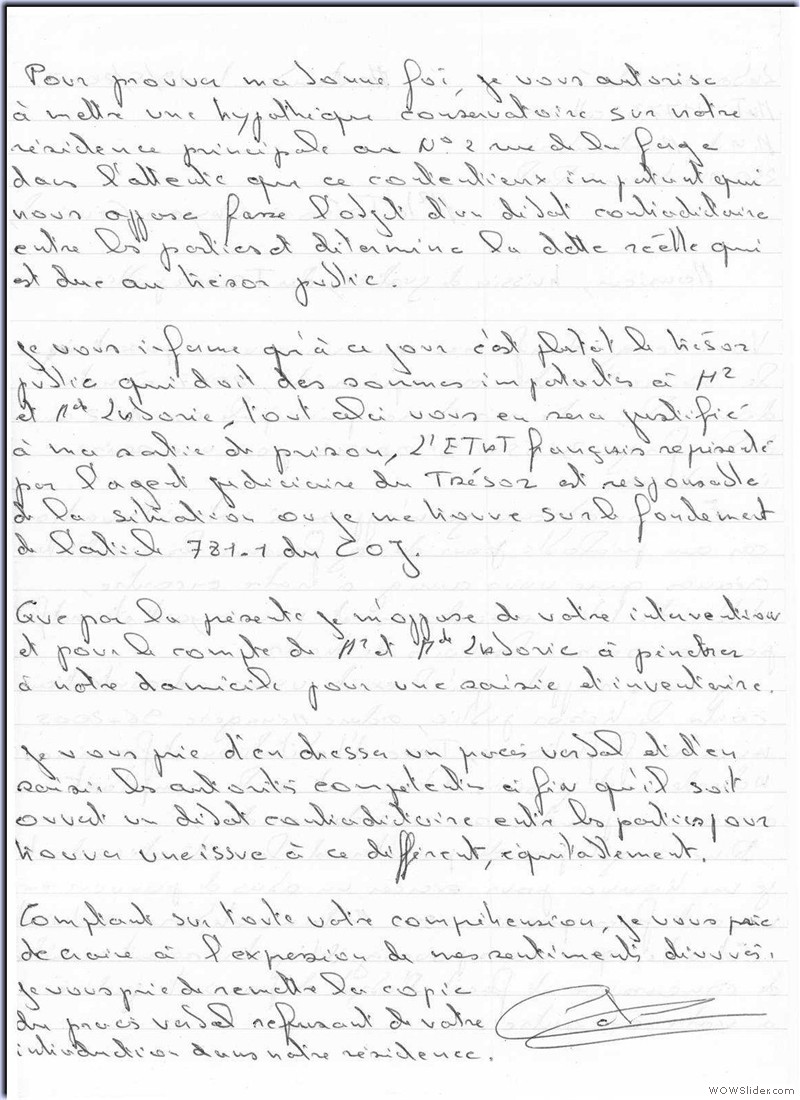 Pour prouver ma bonne foi, je vous autorise
à mettre une hypothèque conservatoire sur notre
résidence principale au N° 2 rue de la forge
dans l'attente que ce contentieux important qui
nous oppose fasse l'objet d'un débat contradictoire
entre les parties et détermine la dette réelle qui
est due au trésor public.
Je vous informe qu'à ce jour c'est plutôt le trésor
public qui doit des sommes importantes à Mr
et Mde Laborie, tout cela vous en sera justifié
à ma sortie de prison, L'ETAT français représenté
par l'agent judiciaire du TRÉSOR est responsable
de la situation ou je me trouve sur le fondement
de l'article 781-1 du COJ.
Que par la présente je m'oppose de votre intervention
et pour le compte de Mr et Mde Laborie à pénétrer
à notre domicile pour une saisie d'inventaire.
Je vous prie d'en dresser un procès verbal et d'en
saisir les autorités compétentes afin qu'il soit
ouvert un débat contradictoire entre les parties pour
trouver une issue à ce différent, équitablement.
Comptant sur toute votre compréhension, je vous prie
de croire à l'expression de mes sentiments dévoués.
Je vous prie de remettre la copie
du procès verbal refusant de votre
introduction dans notre résidence.
WOWSlider.com